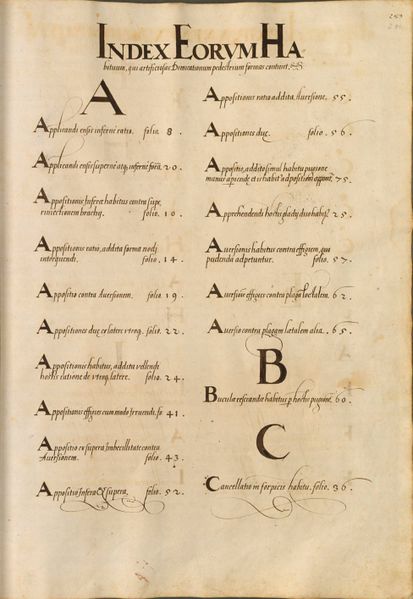 INDEX EORVM HA
bituum, qui artificiosae Dimicationum pedestrium formas continet.
A
Applicandi ensis infernè ratio. folio. 8.
Applicandi ensis supernè atq; infernè 20.
Appositionis Inferæ habitus contra supe
rim brachij. folio. 10.
Appositionis ratio, addita forma nodj
intorquendi. folio. 14.
Appositio contra Aversionem. folio. 19.
Appositiones duę ex latere vtroq. folio. 22.
Appositionis habitus, addita vellendi
hostis ratione de vtroq. latere. folio. 24.
Appositionis effigies cum modo feriendi. fo 41.
Appositio ex supera Imbecillitate contra
Aversionem. folio. 43.
Appositio Infera & supera. folio. 52.
Appositionis ratio addita Aversione. 55.
Appositiones duę. folio. 56.
Appositio, addito simul habitu pugione
manus et is habitus 75.
Apprehendendi hostis gladij duo habitus 25.
Aversionis habitus contra effigiem, qua
pudenda adpetuntur. folio. 57.
Aversionis effigies contra plagam loctalem. 62.
Aversio contra plagam lætalem alia. 65.
B
Buculæ resciandæ habitus p hostis pugionem 60.
C
Cancellatio in forpicis habitu. folio. 36.